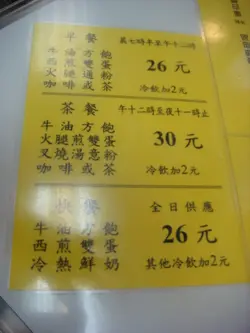 早餐 晨七時半至午十二時
牛油方飽
西煎雙蛋 26元
火腿通粉
咖啡或茶 冷飲加2元
茶餐 午十二時至夜十一時止
牛油方飽
火腿煎雙蛋 30元
叉燒湯意粉
咖啡或茶 冷飲加2元
快餐 全日供應
牛油方飽
西煎雙蛋 26元
冷熱鮮奶 其他冷飲加2元